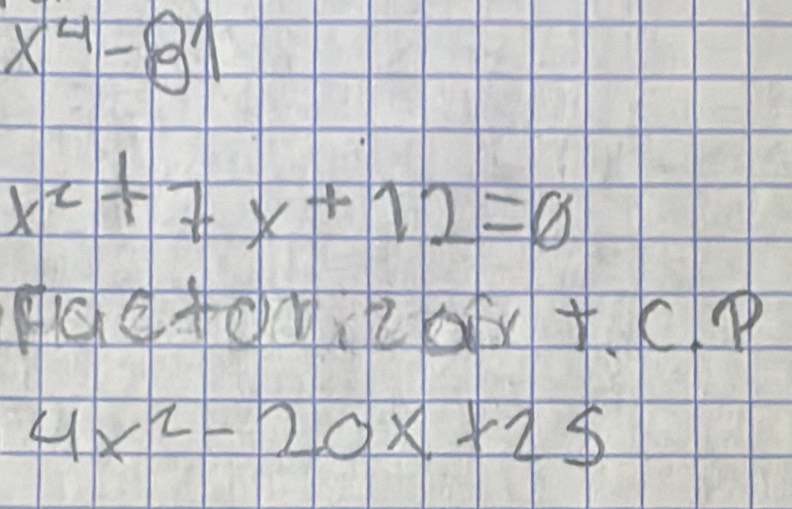 x⁴-81
x²+7x+12=0
Factorizar t.C.P
4x²-20x+25